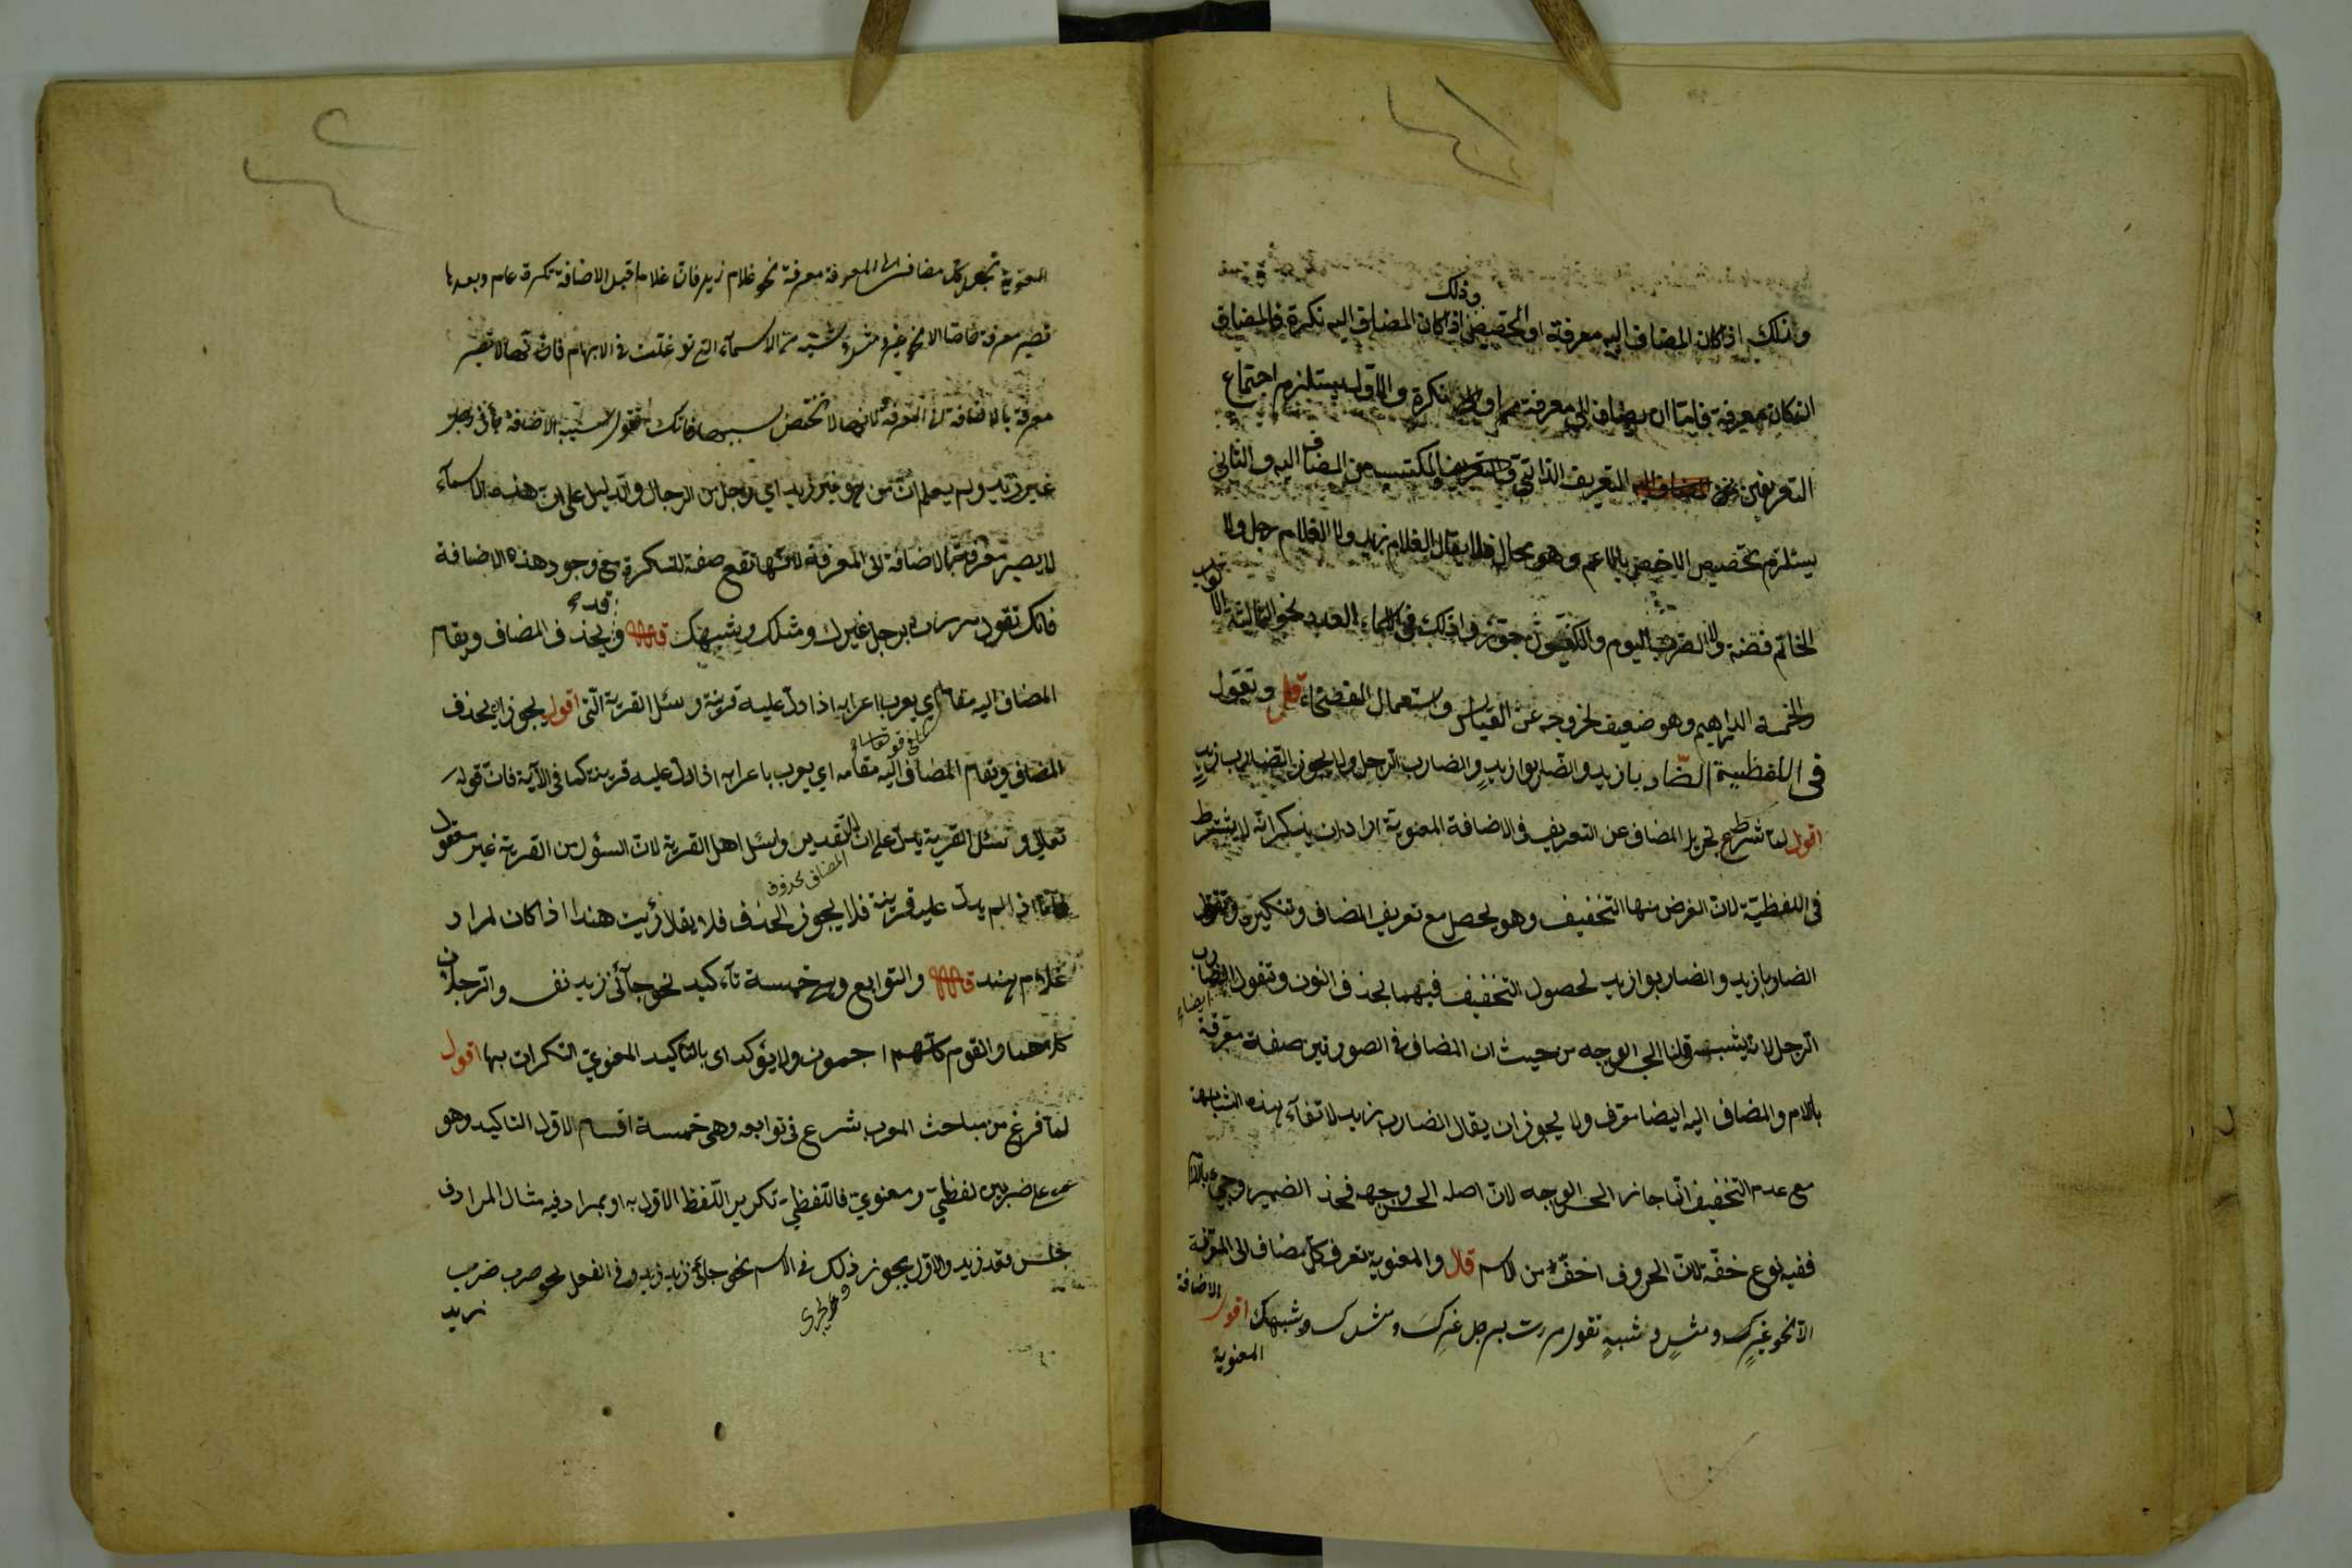 وذلك
وذلك اذا كان المضاف اليه معرفة او التخصيص اذا كان المضاف اليه نكرة فالمضاف
ان كان معرفة فاما ان يضاف الى معرفة او الى نكرة والاول يستلزم اجتماع
التعريفين التعريف الذاتي والتعريف المكتسب من المضاف اليه والثاني
يستلزم تخصيص الاخص بالاعم وهو محال فلا يقال الغلام زيد ولا الغلام رجل ولا
الخاتم فضة ولا الضرب اليوم والكوفيون جوّزوا ذلك في اسماء العدد نحو الثلثة الاثواب
والخمسة الدراهم وهو ضعيف لخروجه عن القياس واستعمال الفصحاء قال وتقول
في اللفظية الضاربا زيد والضاربوا زيد والضارب الرجل ولا يجوز الضارب زيد
اقول لما شرط تجريد المضاف عن التعريف في الاضافة المعنوية اراد ان يذكر انه لا يشترط
في اللفظية لان الغرض منها التخفيف وهو يحصل مع تعريف المضاف وتنكيره وتقول
الضاربا زيد والضاربوا زيد لحصول التخفيف فيهما بحذف النون وتقول الضارب
ايضاء
الرجل لانه يشبه قولنا الحسن الوجه من حيث ان المضاف في الصورتين صفة معرفة
باللام والمضاف اليه ايضا معرف ولا يجوز ان يقال الضارب زيد لانتفاء هذه المشابهة
مع عدم التخفيف انما جاز الحسن الوجه لان اصله الحسن وجهه فحذف الضمير وجيء باللام
ففيه نوع خفة لان الحروف اخف من الاسم قال والمعنوية تعرف كل مضاف الى المعرفة
الا نحو غيرك ومثل وشبه تقول مررت برجل غيرك ومثلك وشبهك اقول الاضافة
المعنوية
المعنوية تجعل كل مضاف الى المعرفة معرفة نحو غلام زيد فان غلاما قبل الاضافة نكرة عام وبعدها
تصير معرفة خاصا الا نحو غير ومثل وشبه من الاسماء التي توغلت في الابهام فان تصير
معرفة بالاضافة الى المعرفة لانها لا تختص بسببها فانك تقول بسبب الاضافة جاءني رجل
غير زيد ولم يعلم ان من هو غير زيد اي رجل من الرجال والدليل على ان هذه الاسماء
لا يصير معرفة بالاضافة الى المعرفة لانها تقع صفة للنكرة مع وجود هذه الاضافة
فانك تقول مررت برجل غيرك ومثلك وشبهك قال وقد يحذف المضاف ويقام
المضاف اليه مقامه اي يعرب باعرابه اذا دل عليه قرينة وسئل القرية التي اقول يجوز ان يحذف
كما في قوله تعالى
المضاف ويقام المضاف اليه مقامه اي يعرب باعرابه اذا دل عليه قرينة كما في الآية فان قوله
تعالى وسئل القرية يدل على ان التقدير وسئل اهل القرية لان السؤل من القرية غير معقول
المضاف محذوف
اذ لم يدل عليه قرينة فلا يجوز الحذف فلا يقل رأيت هندا اذا كان المراد
غلام هند قال والتوابع وهي خمسة تأكيد نحو جاءني زيد نفسه والرجلان
كلاهما والقوم كلهم اجمعون ولا يؤكد اي بالتأكيد المعنوي النكرات بها اقول
لما فرغ من مباحث المعرب شرع في توابعه وهي خمسة اقسام الاول التاكيد وهو
على ضربين لفظي ومعنوي فاللفظي تكرير اللفظ الاول به او بمرادفه مثال المرادف
جلس وقعد زيد والاول يجوز ذلك في الاسم نحو جاءني زيد زيد وفي الفعل نحو ضرب ضرب
زيد